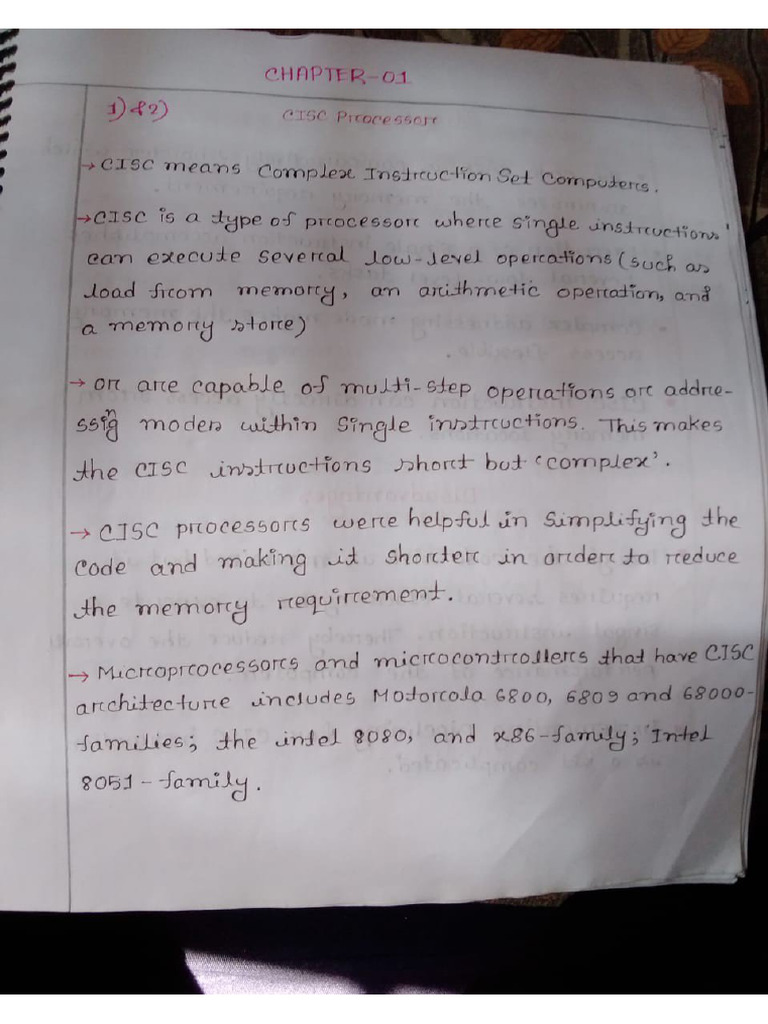 CHAPTER-01
1) & 2) CISC Processor
→ CISC means Complex Instruction Set Computers.
→ CISC is a type of processor where single instructions
can execute several low-level operations (such as
load from memory, an arithmetic operation, and
a memory store)
→ or are capable of multi-step operations or addre-
ssing modes within single instructions. This makes
the CISC instructions short but 'complex'.
→ CISC processors were helpful in simplifying the
code and making it shorter in order to reduce
the memory requirement.
→ Microprocessors and microcontrollers that have CISC
architecture includes Motorola 6800, 6809 and 68000-
families; the intel 8080, and x86-family; Intel
8051-family.